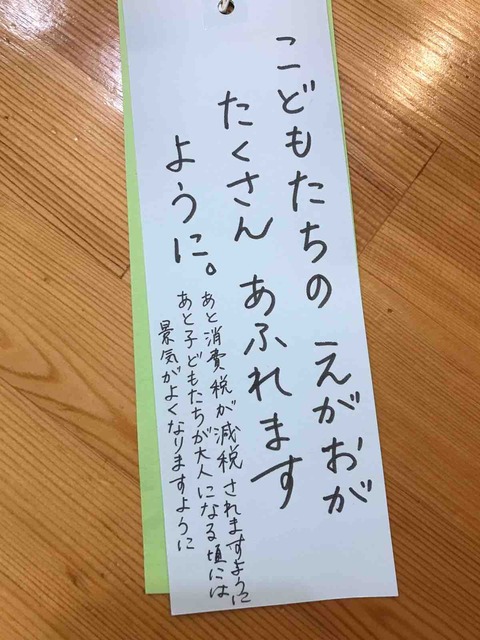 こどもたちの えがおが
たくさん あふれます
ように。
あと消費税が減税されますように
あと子どもたちが大人になる頃には
景気がよくなりますように